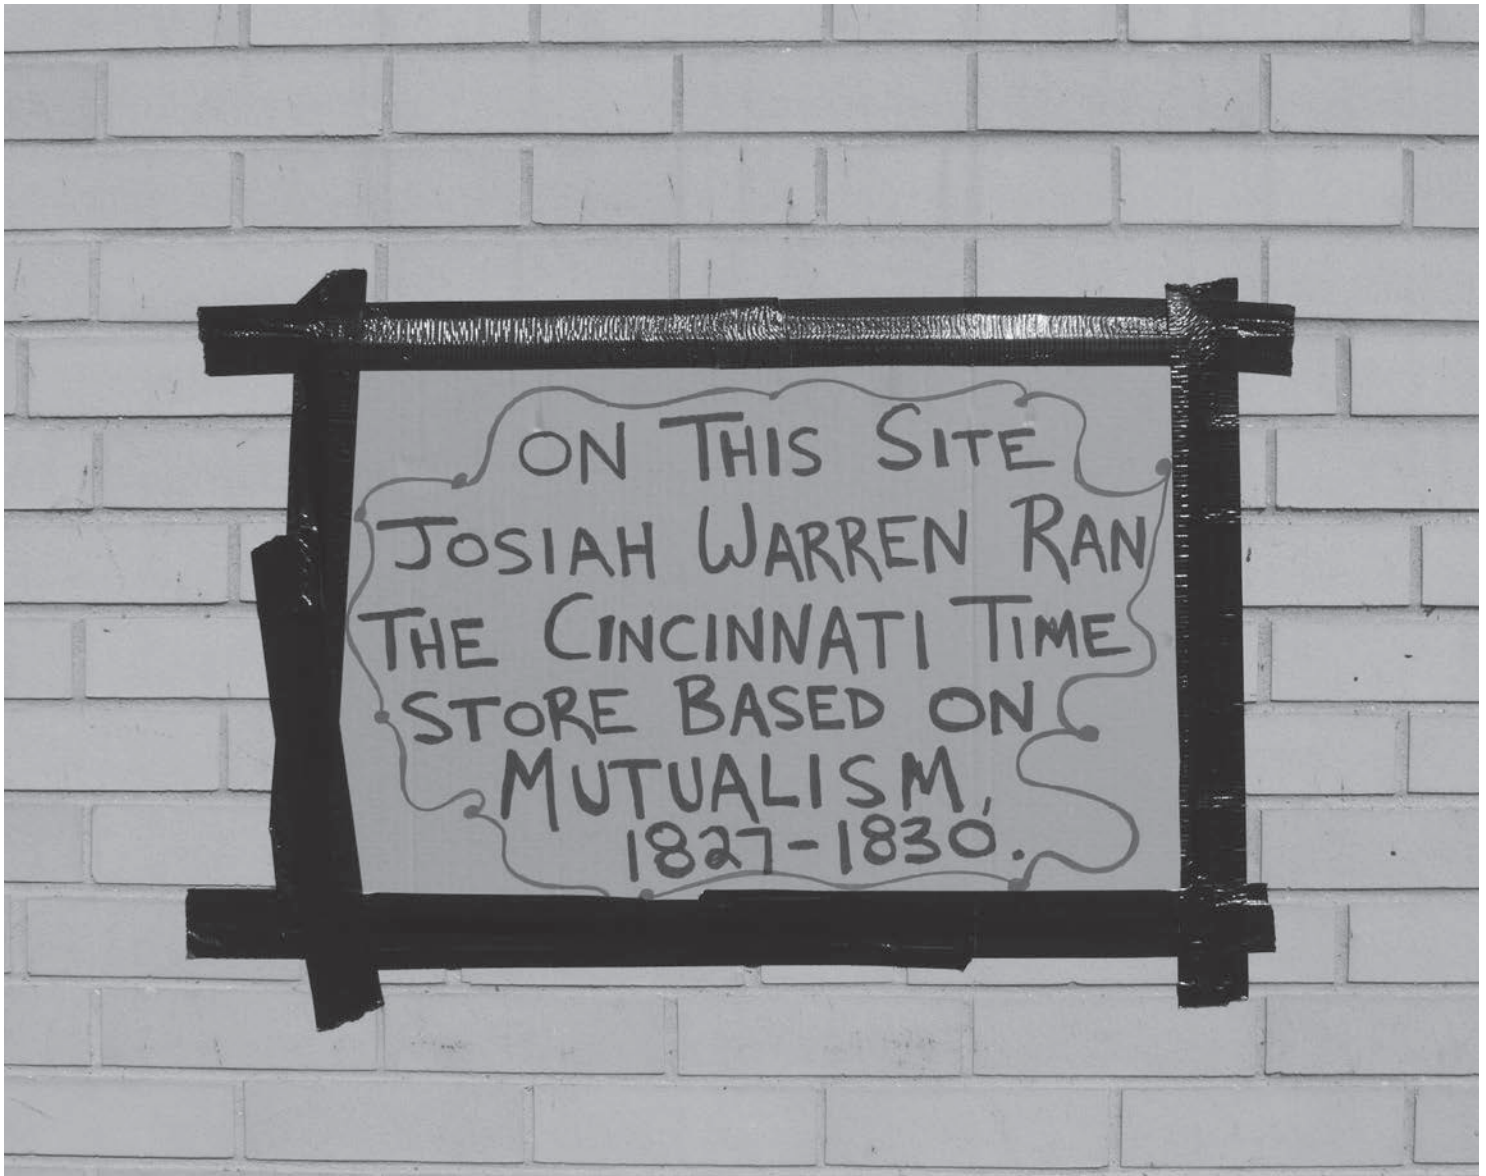 ON THIS SITE
JOSIAH WARREN RAN
THE CINCINNATI TIME
STORE BASED ON
MUTUALISM,
1827-1830.